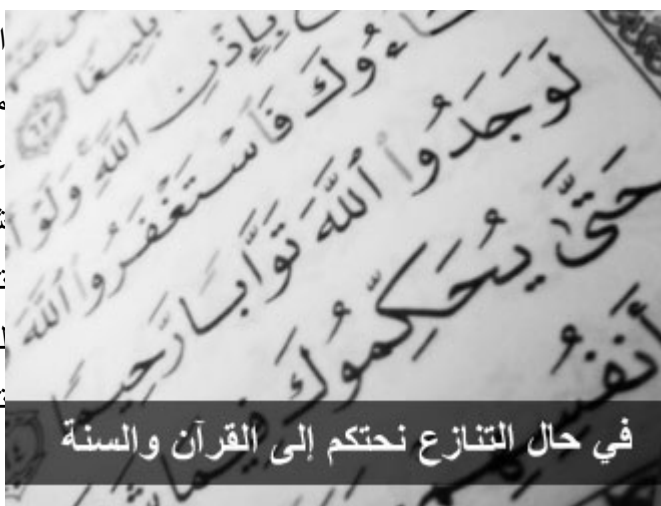 بَلِيغًا ٦٣
بِإِذْنِ ٱللَّهِ وَلَوْ
فَٱسْتَغْفَرُوا۟ ٱللَّهَ
لَوَجَدُوا۟ ٱللَّهَ تَوَّابًا رَّحِيمًا
حَتَّىٰ يُحَكِّمُوكَ فِيمَا
أَنفُسِهِمْ
في حال التنازع نحتكم إلى القرآن والسنة